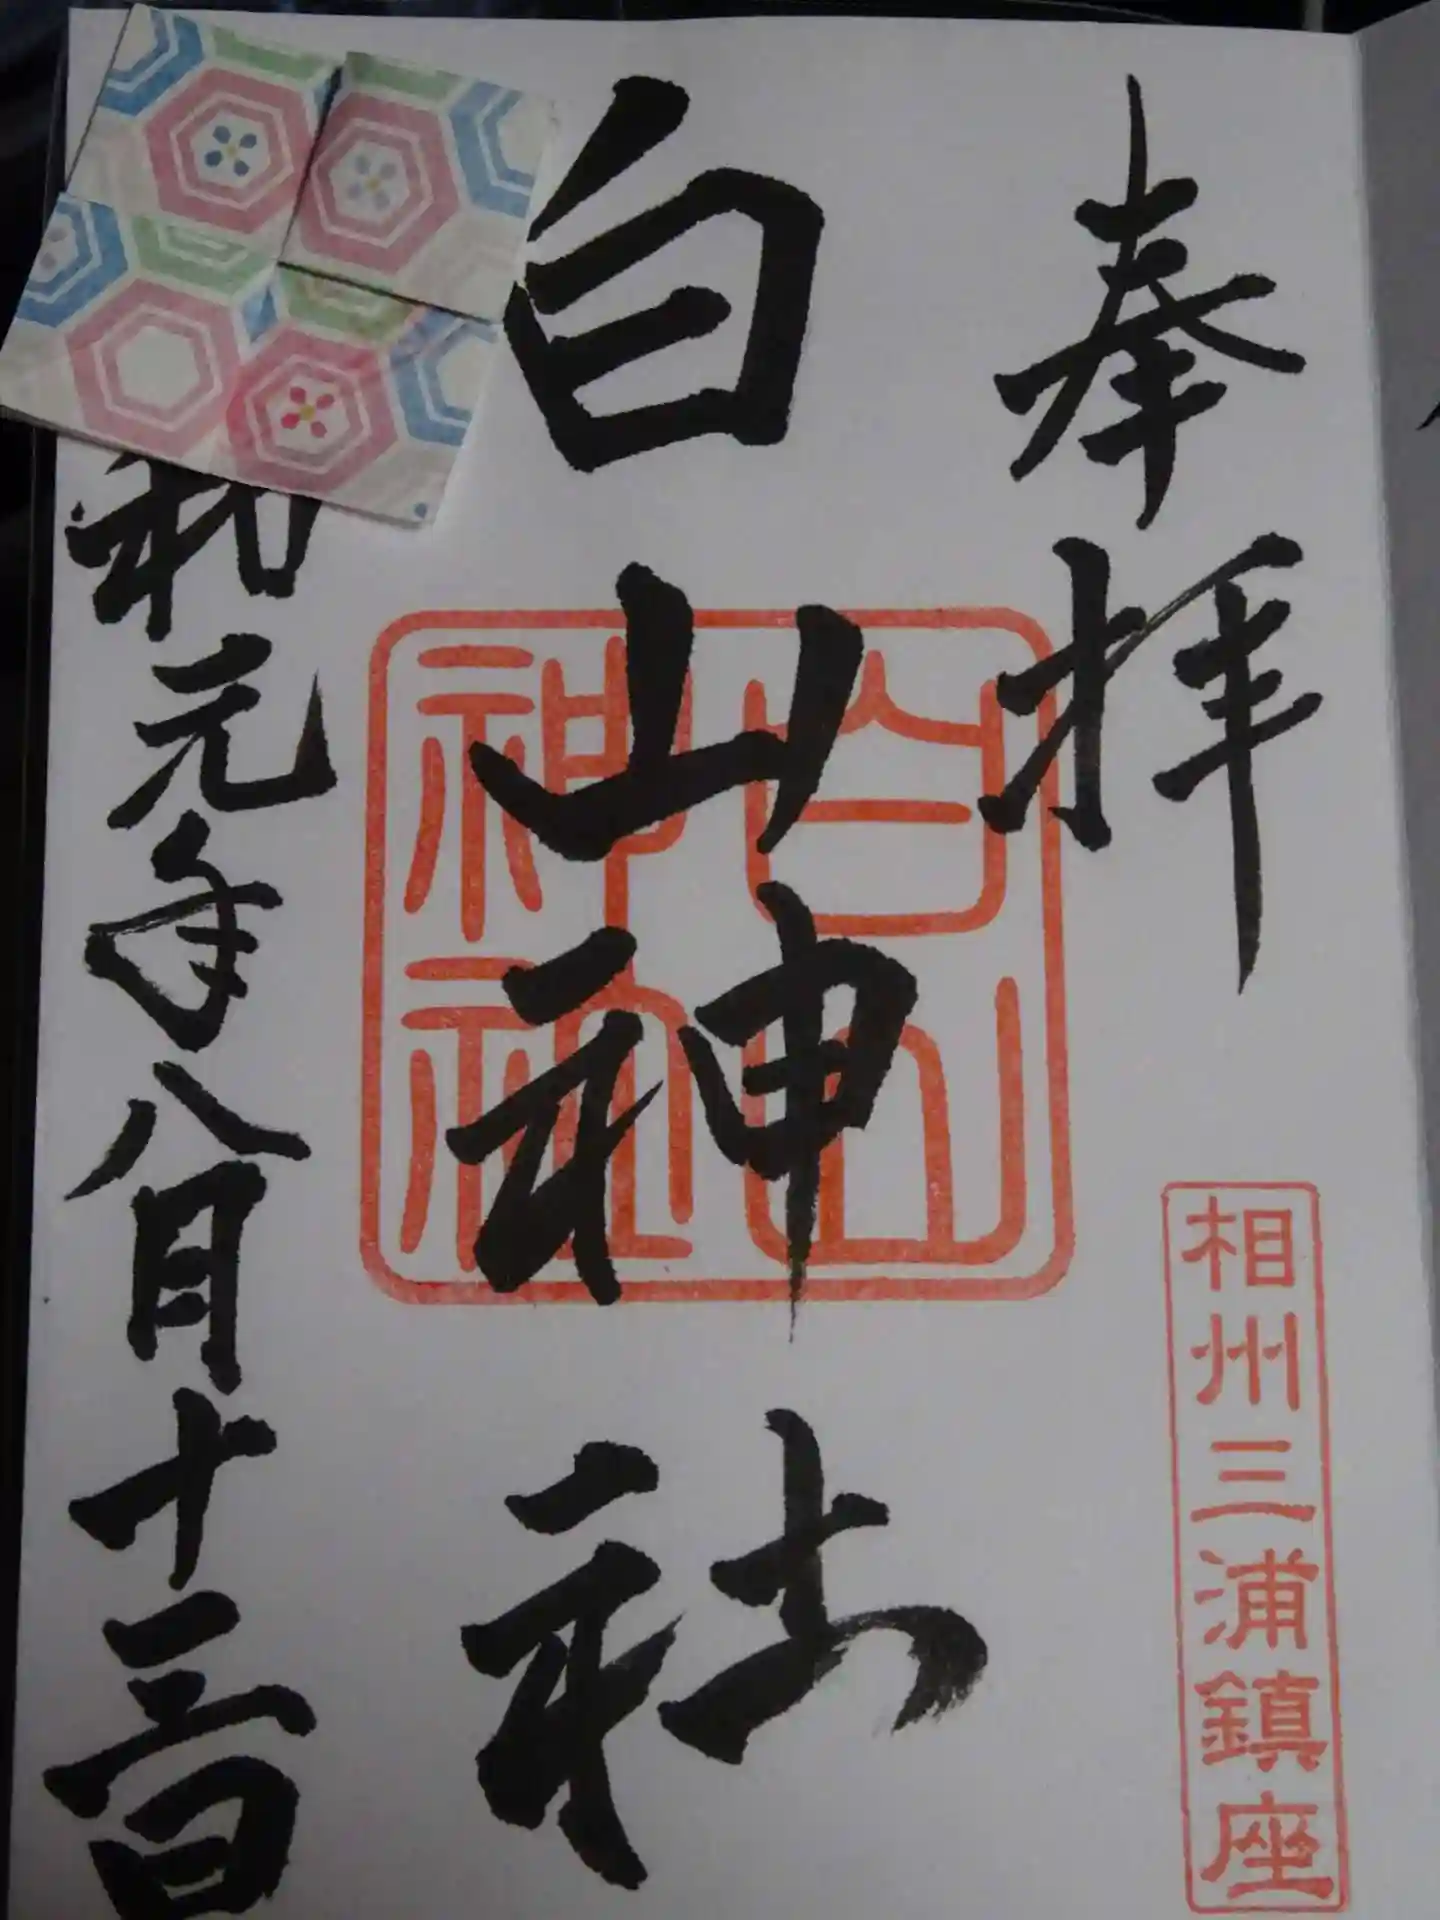 奉拝
相州三浦鎮座
白山神社
白山
神社
和元年八月十三日